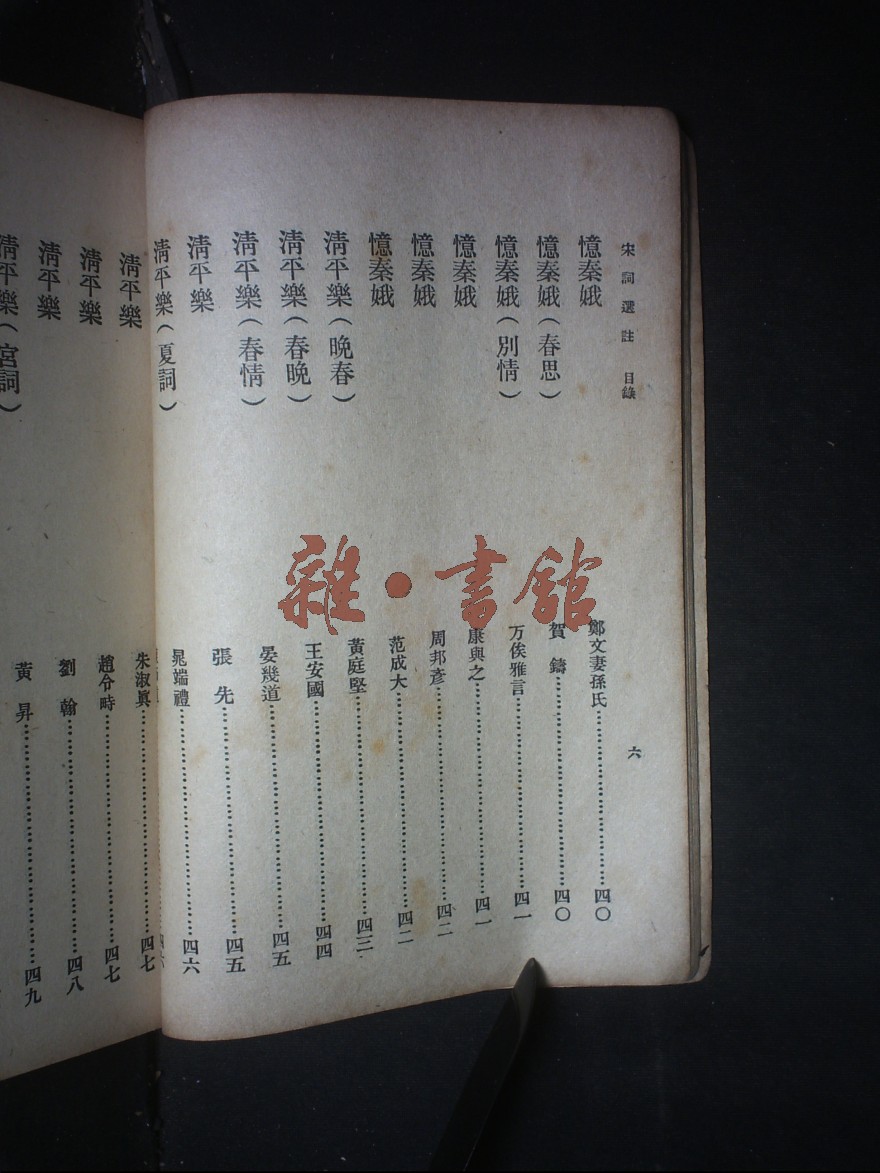 宋詞選註 目錄 六
憶秦娥 鄭文妻孫氏……四〇
憶秦娥(春思) 賀鑄……四〇
憶秦娥(別情) 万俟雅言……四一
憶秦娥 康與之……四一
憶秦娥 周邦彥……四二
憶秦娥 范成大……四二
清平樂(晚春) 黃庭堅……四三
清平樂(春晚) 王安國……四四
清平樂(春情) 晏幾道……四五
清平樂 張先……四五
清平樂(夏詞) 晁端禮……四六
清平樂 朱淑眞……四七
清平樂 趙令時……四七
清平樂 劉翰……四八
清平樂(宮詞) 黃昇……四九
雜·書館